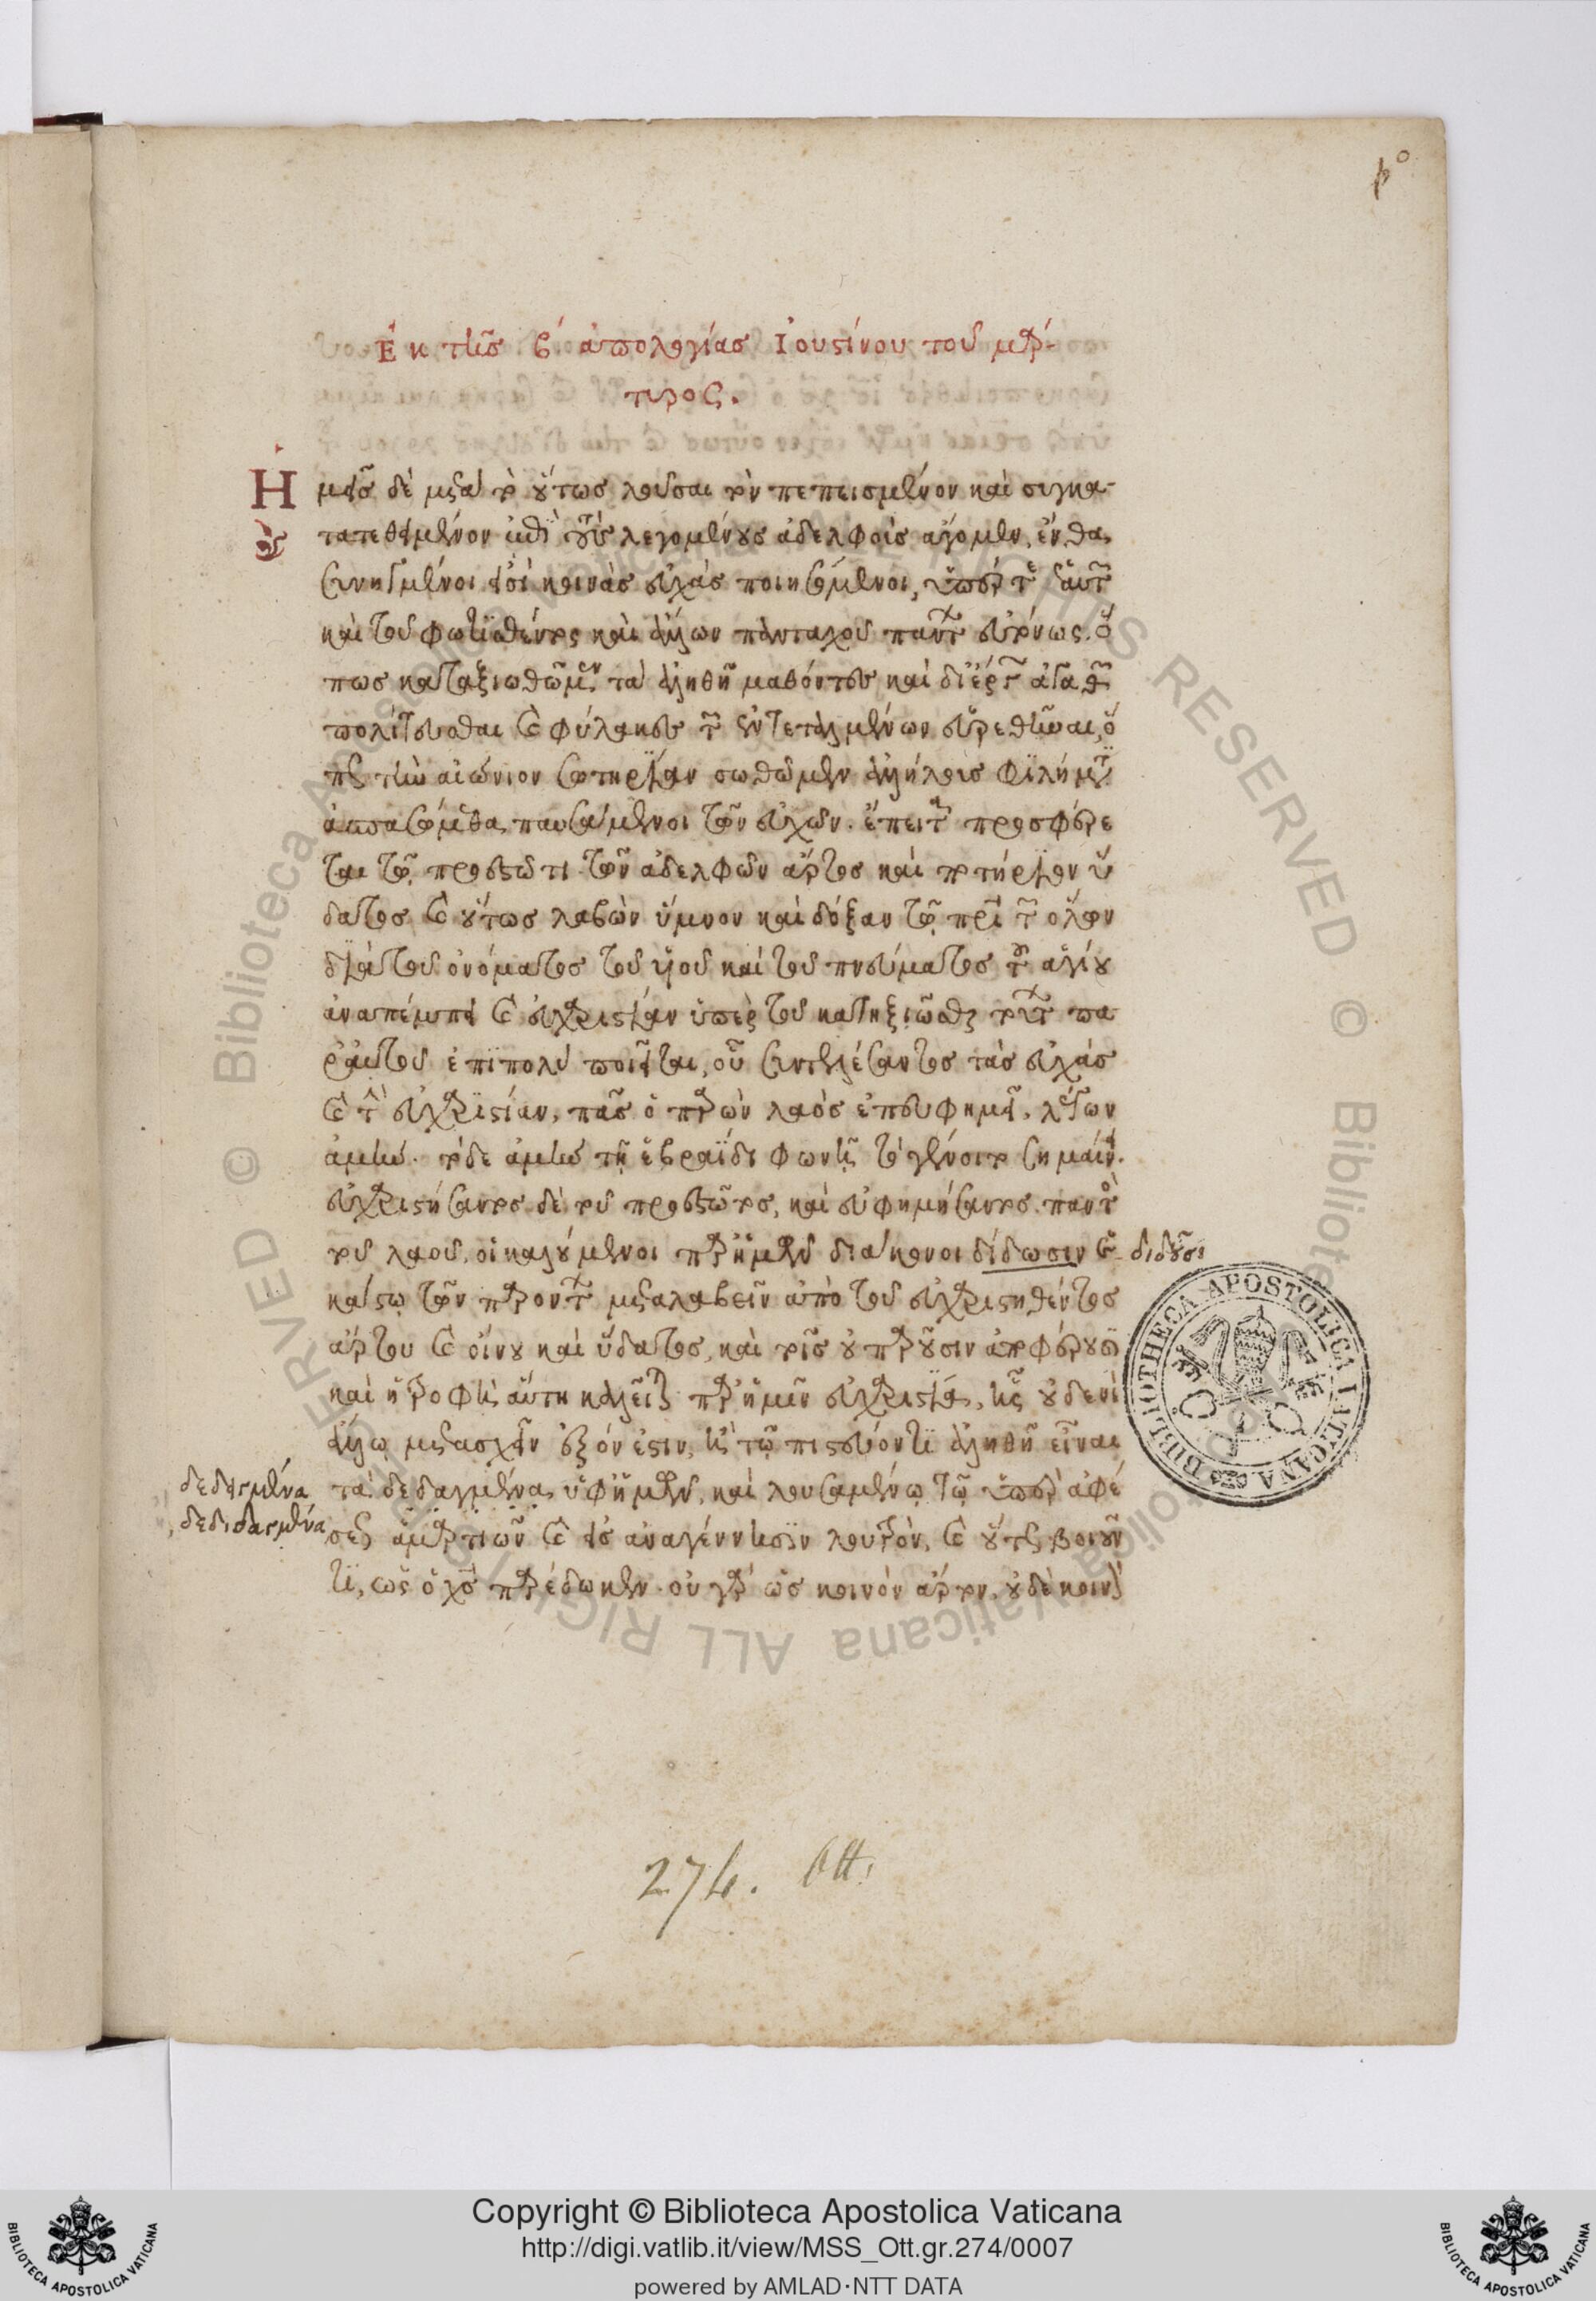 β°
Ἐκ τῆς β΄ ἀπολογίας Ἰουστίνου τοῦ μάρ-
τυρος.
Ἡμᾶς δὲ μετὰ τὸ οὕτως λοῦσαι τὸν πεπεισμένον καὶ συγκα-
τατεθειμένον ἐπὶ τοὺς λεγομένους ἀδελφοὺς ἄγομεν, ἔνθα
συνηγμένοι εἰσὶ κοινὰς εὐχὰς ποιησόμενοι, ὑπέρ τε ἑαυτῶν
καὶ τοῦ φωτισθέντος καὶ ἄλλων πανταχοῦ πάντων εὐτόνως. ὅ
πως καταξιωθῶμεν τὰ ἀληθῆ μαθόντες καὶ δι' ἔργων ἀγαθοὶ
πολιτευσθαι καὶ φύλακες τῶν ἐντεταλμένων εὑρεθῆναι, ὅ
πως τὴν αἰώνιον σωτηρίαν σωθῶμεν ἀλλήλους φιλήματι
ἀσπασόμεθα παυσάμενοι τῶν εὐχῶν. ἔπειτα προσφέρε
ται τῷ προεστῶτι τῶν ἀδελφῶν ἄρτος καὶ ποτήριον ὕ
δατος καὶ οὕτως λαβὼν ὕμνον καὶ δόξαν τῷ πρὶ τῶν ὅλων
διὰ τοῦ ὀνόματος τοῦ υἱοῦ καὶ τοῦ πνεύματος τοῦ ἁγίου
ἀναπέμπει καὶ εὐχαριστίαν ὑπὲρ τοῦ κατηξιῶσθαι τούτων πα
ρ' αὐτοῦ ἐπιπολὺ ποιεῖται, οὗ συντελέσαντος τὰς εὐχὰς
καὶ τὴν εὐχαριστίαν, πᾶς ὁ παρὼν λαὸς ἐπευφημεῖ, λέγων
ἀμήν. τὸ δε ἀμὴν τῇ ἑβραΐδι φωνῇ τὸ γένοιτο σημαίνει.
εὐχαριστήσαντος δὲ τοῦ προεστῶτος, καὶ εὐφημήσαντος παντὸς
τοῦ λαοῦ, οἱ καλούμενοι παρ' ἡμῖν διάκονοι δίδωσιν ἑ- διδοῦσι
κάστῳ τῶν παρόντων μεταλαβεῖν ἀπὸ τοῦ εὐχαριστηθέντος
ἄρτου καὶ οἴνου καὶ ὕδατος, καὶ τοῖς οὐ παροῦσιν ἀποφέρουσι
καὶ ἡ τροφὴ αὕτη καλεῖται παρ' ἡμῖν εὐχαριστία, ἧς οὐδενὶ
ἄλλῳ μετασχεῖν ἐξόν ἐστιν, ἢ τῷ πιστεύοντι ἀληθῆ εἶναι
δεδειγμένα τὰ δεδαγμένα ὑφ' ἡμῶν, καὶ λουσαμένῳ τῷ ὑπὲρ ἀφέ
δεδιδαγμένα σεως ἁμαρτιῶν καὶ εἰς ἀναγέννησιν λουτρὸν, καὶ οὕτως βιοῦν
τι, ὡς ὁ χς παρέδωκεν. οὐ γὰρ ὡς κοινὸν ἄρτον, οὐδὲ κοινὸν
BIBLIOTHECA APOSTOLICA VATICANA
274. Ott.
Copyright © Biblioteca Apostolica Vaticana
http://digi.vatlib.it/view/MSS_Ott.gr.274/0007
powered by AMLAD·NTT DATA
BIBLIOTECA APOSTOLICA VATICANA
BIBLIOTECA APOSTOLICA VATICANA